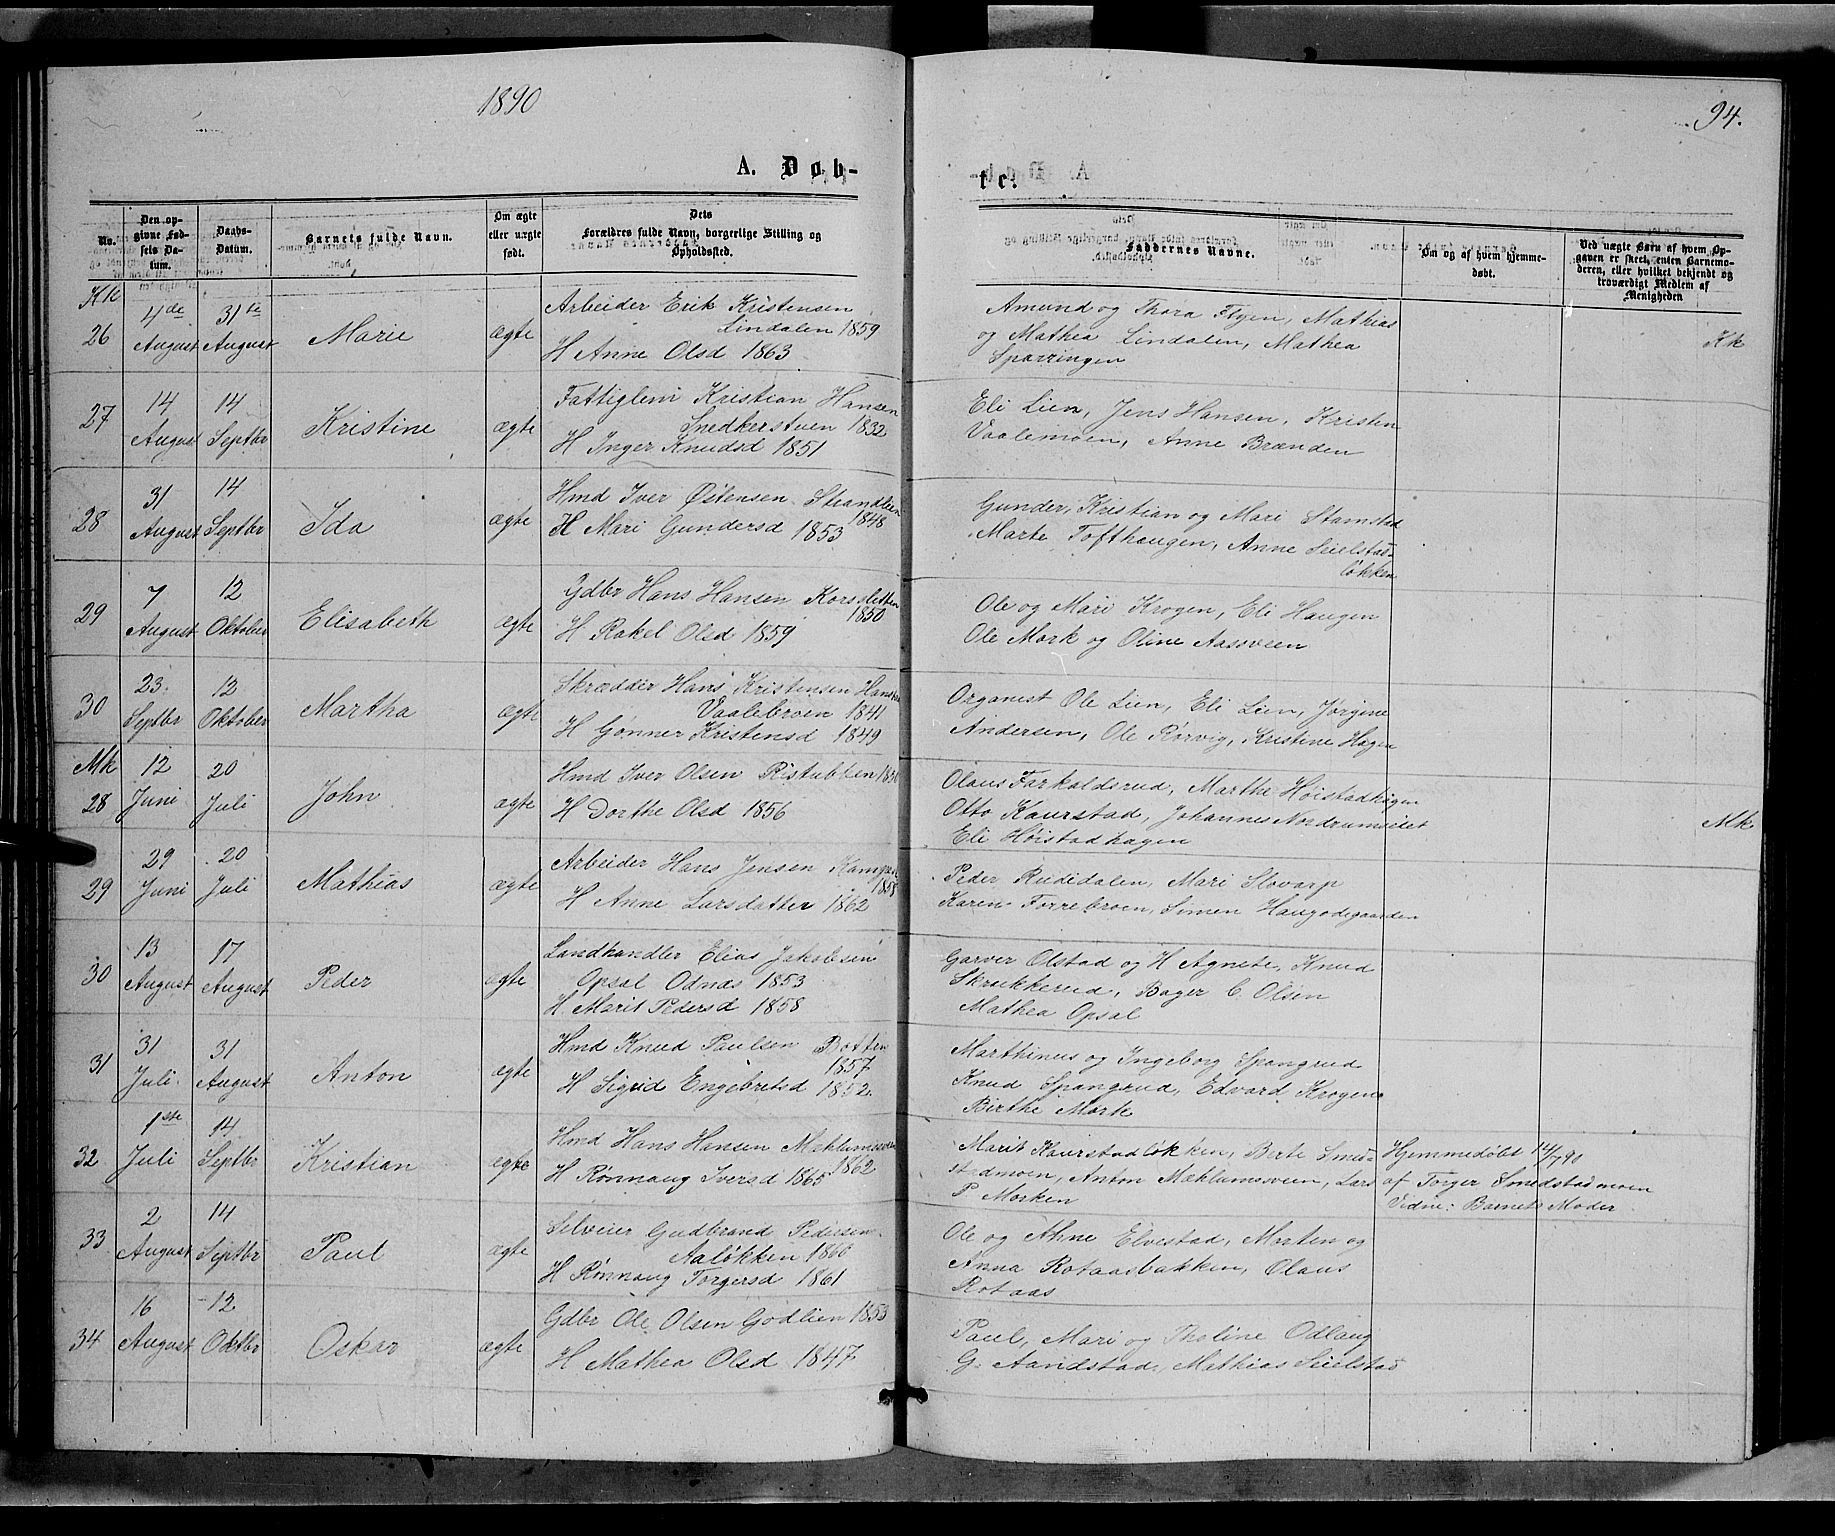 1890
94.
A. Døb-
te.
No.
Den op-
givne Fød-
sels Da-
tum.
Daabs-
Datum.
Barnets fulde Navn.
Om ægte
eller uægte
født.
Dets
Forældres fulde Navn, borgerlige Stilling og
Opholdssted.
Faddernes Navne.
Om og af hvem hjemme-
døbt.
Ved uægte Børn af hvem Op-
gaven er skeet, enten Barnemo-
deren, eller hvilket bekjendt og
troværdigt Medlem af
Menigheden
Kk
26
4de
August
31te
August
Marie
ægte
Arbeider Erik Kristensen
Lindalen 1859
H Anne Olsd 1863
Amund og Thora Flyen, Mathias
og Mathea Lindalen, Mathea
Sparringen
Kk
27
14
August
14
Septbr
Kristine
ægte
Fattiglem Kristian Hansen
Snedkerstuen 1832
H Inger Knudsd 1851
Eli Lien, Jens Hansen, Kristen
Vaalemoen, Anne Brænden
28
31
August
14
Septbr
Ida
ægte
Hmd Iver Østensen Strandlien
1848
H Mari Gundersd 1853
Gunder, Kristian og Mari Stamstad
Marte Tofthaugen, Anne Seielstad-
løkken
29
7
August
12
Oktober
Elisabeth
ægte
Gdbr Hans Hansen Korsletten
1850
H Rakel Olsd 1859
Ole og Mari Krogen, Eli Haugen
Ole Mork og Oline Aassveen
30
23
Septbr
12
Oktober
Martha
ægte
Skrædder Hans Kristensen
Vaalebroen 1841
H Gonner Kristensd 1849
Organist Ole Lien, Eli Lien, Jørgine
Andersen, Ole Rørvig, Kristine Hagen
Mk
28
12
Juni
20
Juli
John
ægte
Hmd Iver Olsen Ristubben
H Dorthe Olsd 1856
Olaus Farkaldsrud, Marthe Høistadhagen
Otto Kaurstad, Johannes Nordrumseiet
Eli Høistadhagen
Mk
29
29
Juni
20
Juli
Mathias
ægte
Arbeider Hans Jensen
1858
H Anne Larsdatter 1862
Peder Rudidalen, Mari Slovarp
Karen Forrebroen, Simen Haugodegaarden
30
13
August
17
August
Peder
ægte
Landhandler Elias Jakobsen
Opsal Odnæs 1853
H Marit Pedersd 1858
Garver Olstad og H Agnete, Knud
Skrukkerud, Bager C. Olsen
Mathea Opsal
31
31
Juli
31
August
Anton
ægte
Hmd Knud Paulsen Botten
1857
H Sigrid Engebretsd 1852
Marthinus og Ingeborg Spangrud
Knud Spangrud, Edvard Krogen
Birthe Mork
32
1ste
Juli
14
Septbr
Kristian
ægte
Hmd Hans Hansen Mæhlumsveen
1862
H Rønnaug Iversd 1865
Marit Kaurstadløkken, Berte Smed-
stadmoen, Anton Mæhlumsveen, Lars
P Morken
Hjemmedøbt 14/7 90
af Torger Smedstadmoen
Vidne: Barnets Moder
33
2
August
14
Septbr
Paul
ægte
Selveier Gudbrand Pedersen
Aaløkken 1860
H Rønnaug Torgersd 1861
Ole og Anne Elvestad, Morten og
Anna Rotaasbakken, Olaus
Rotaas
34
16
August
12
Oktbr
Oskar
ægte
Gdbr Ole Olsen Godlien 1853
H Mathea Olsd 1847
Paul, Mari og Tholine Odlaug
G. Aandstad, Mathias Seielstad